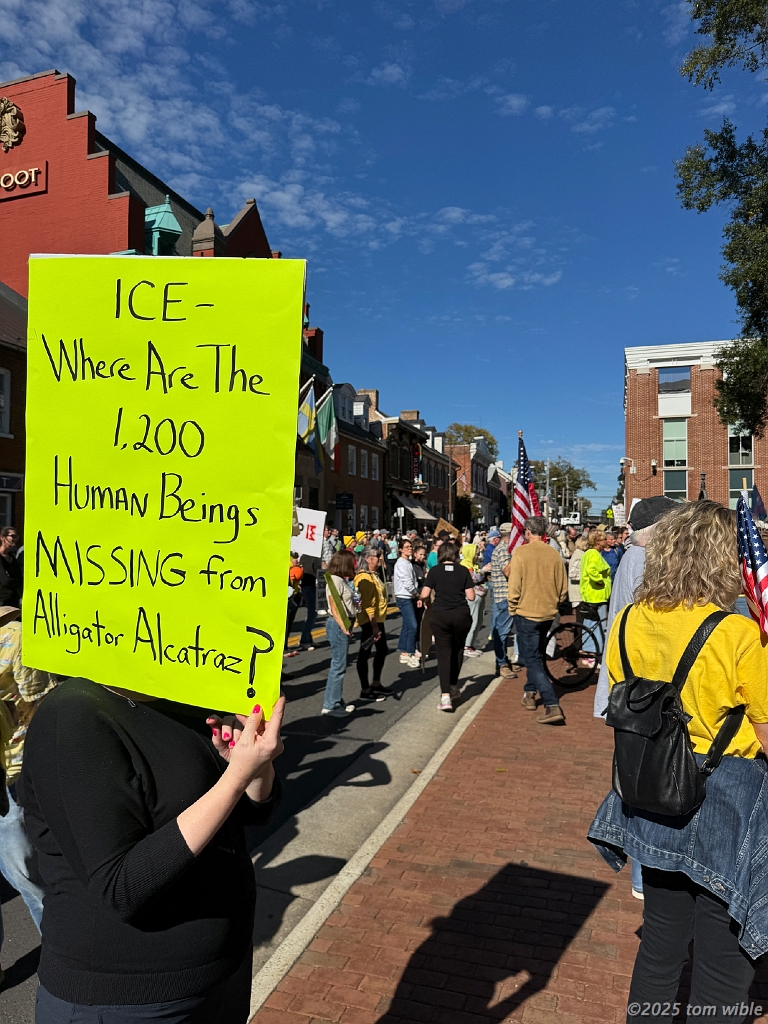 OOT
ICE-
Where Are The
1,200
Human Beings
MISSING from
Alligator Alcatraz?
©2025 tom wible